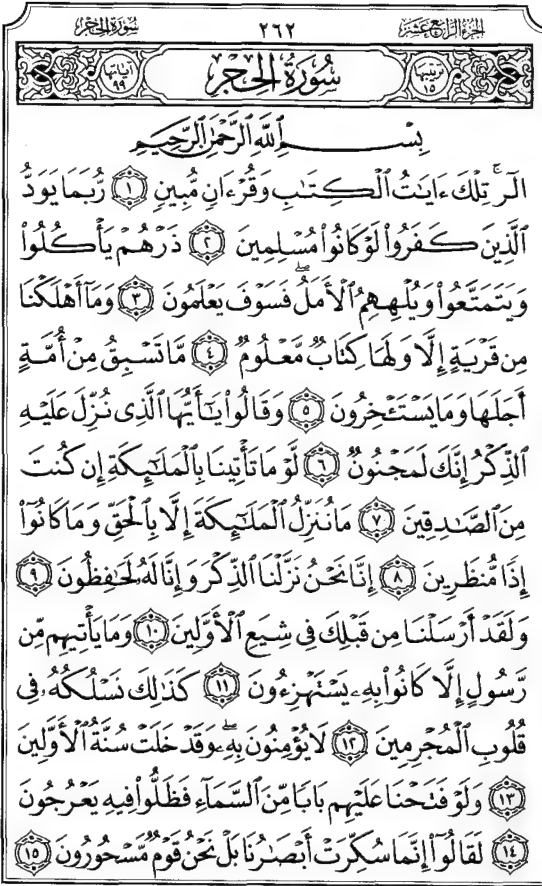 سُورَةُ الحِجْر ٢٦٢ الجُزءُ الرَّابِعَ عَشَرَ
ترتيبها ١٥ سُورَةُ الحِجْرِ آياتها ٩٩
بِسْمِ ٱللَّهِ ٱلرَّحْمَٰنِ ٱلرَّحِيمِ
الٓرۚ تِلْكَ ءَايَٰتُ ٱلْكِتَٰبِ وَقُرْءَانٍ مُّبِينٍ ١ رُّبَمَا يَوَدُّ
ٱلَّذِينَ كَفَرُوا۟ لَوْ كَانُوا۟ مُسْلِمِينَ ٢ ذَرْهُمْ يَأْكُلُوا۟
وَيَتَمَتَّعُوا۟ وَيُلْهِهِمُ ٱلْأَمَلُۖ فَسَوْفَ يَعْلَمُونَ ٣ وَمَآ أَهْلَكْنَا
مِن قَرْيَةٍ إِلَّا وَلَهَا كِتَابٌ مَّعْلُومٌ ٤ مَّا تَسْبِقُ مِنْ أُمَّةٍ
أَجَلَهَا وَمَا يَسْتَـْٔخِرُونَ ٥ وَقَالُوا۟ يَٰٓأَيُّهَا ٱلَّذِى نُزِّلَ عَلَيْهِ
ٱلذِّكْرُ إِنَّكَ لَمَجْنُونٌ ٦ لَّوْ مَا تَأْتِينَا بِٱلْمَلَٰٓئِكَةِ إِن كُنتَ
مِنَ ٱلصَّٰدِقِينَ ٧ مَا نُنَزِّلُ ٱلْمَلَٰٓئِكَةَ إِلَّا بِٱلْحَقِّ وَمَا كَانُوٓا۟
إِذًا مُّنظَرِينَ ٨ إِنَّا نَحْنُ نَزَّلْنَا ٱلذِّكْرَ وَإِنَّا لَهُۥ لَحَٰفِظُونَ ٩
وَلَقَدْ أَرْسَلْنَا مِن قَبْلِكَ فِى شِيَعِ ٱلْأَوَّلِينَ ١٠ وَمَا يَأْتِيهِم مِّن
رَّسُولٍ إِلَّا كَانُوا۟ بِهِۦ يَسْتَهْزِءُونَ ١١ كَذَٰلِكَ نَسْلُكُهُۥ فِى
قُلُوبِ ٱلْمُجْرِمِينَ ١٢ لَا يُؤْمِنُونَ بِهِۦۖ وَقَدْ خَلَتْ سُنَّةُ ٱلْأَوَّلِينَ
١٣ وَلَوْ فَتَحْنَا عَلَيْهِم بَابًا مِّنَ ٱلسَّمَآءِ فَظَلُّوا۟ فِيهِ يَعْرُجُونَ
١٤ لَقَالُوٓا۟ إِنَّمَا سُكِّرَتْ أَبْصَٰرُنَا بَلْ نَحْنُ قَوْمٌ مَّسْحُورُونَ ١٥